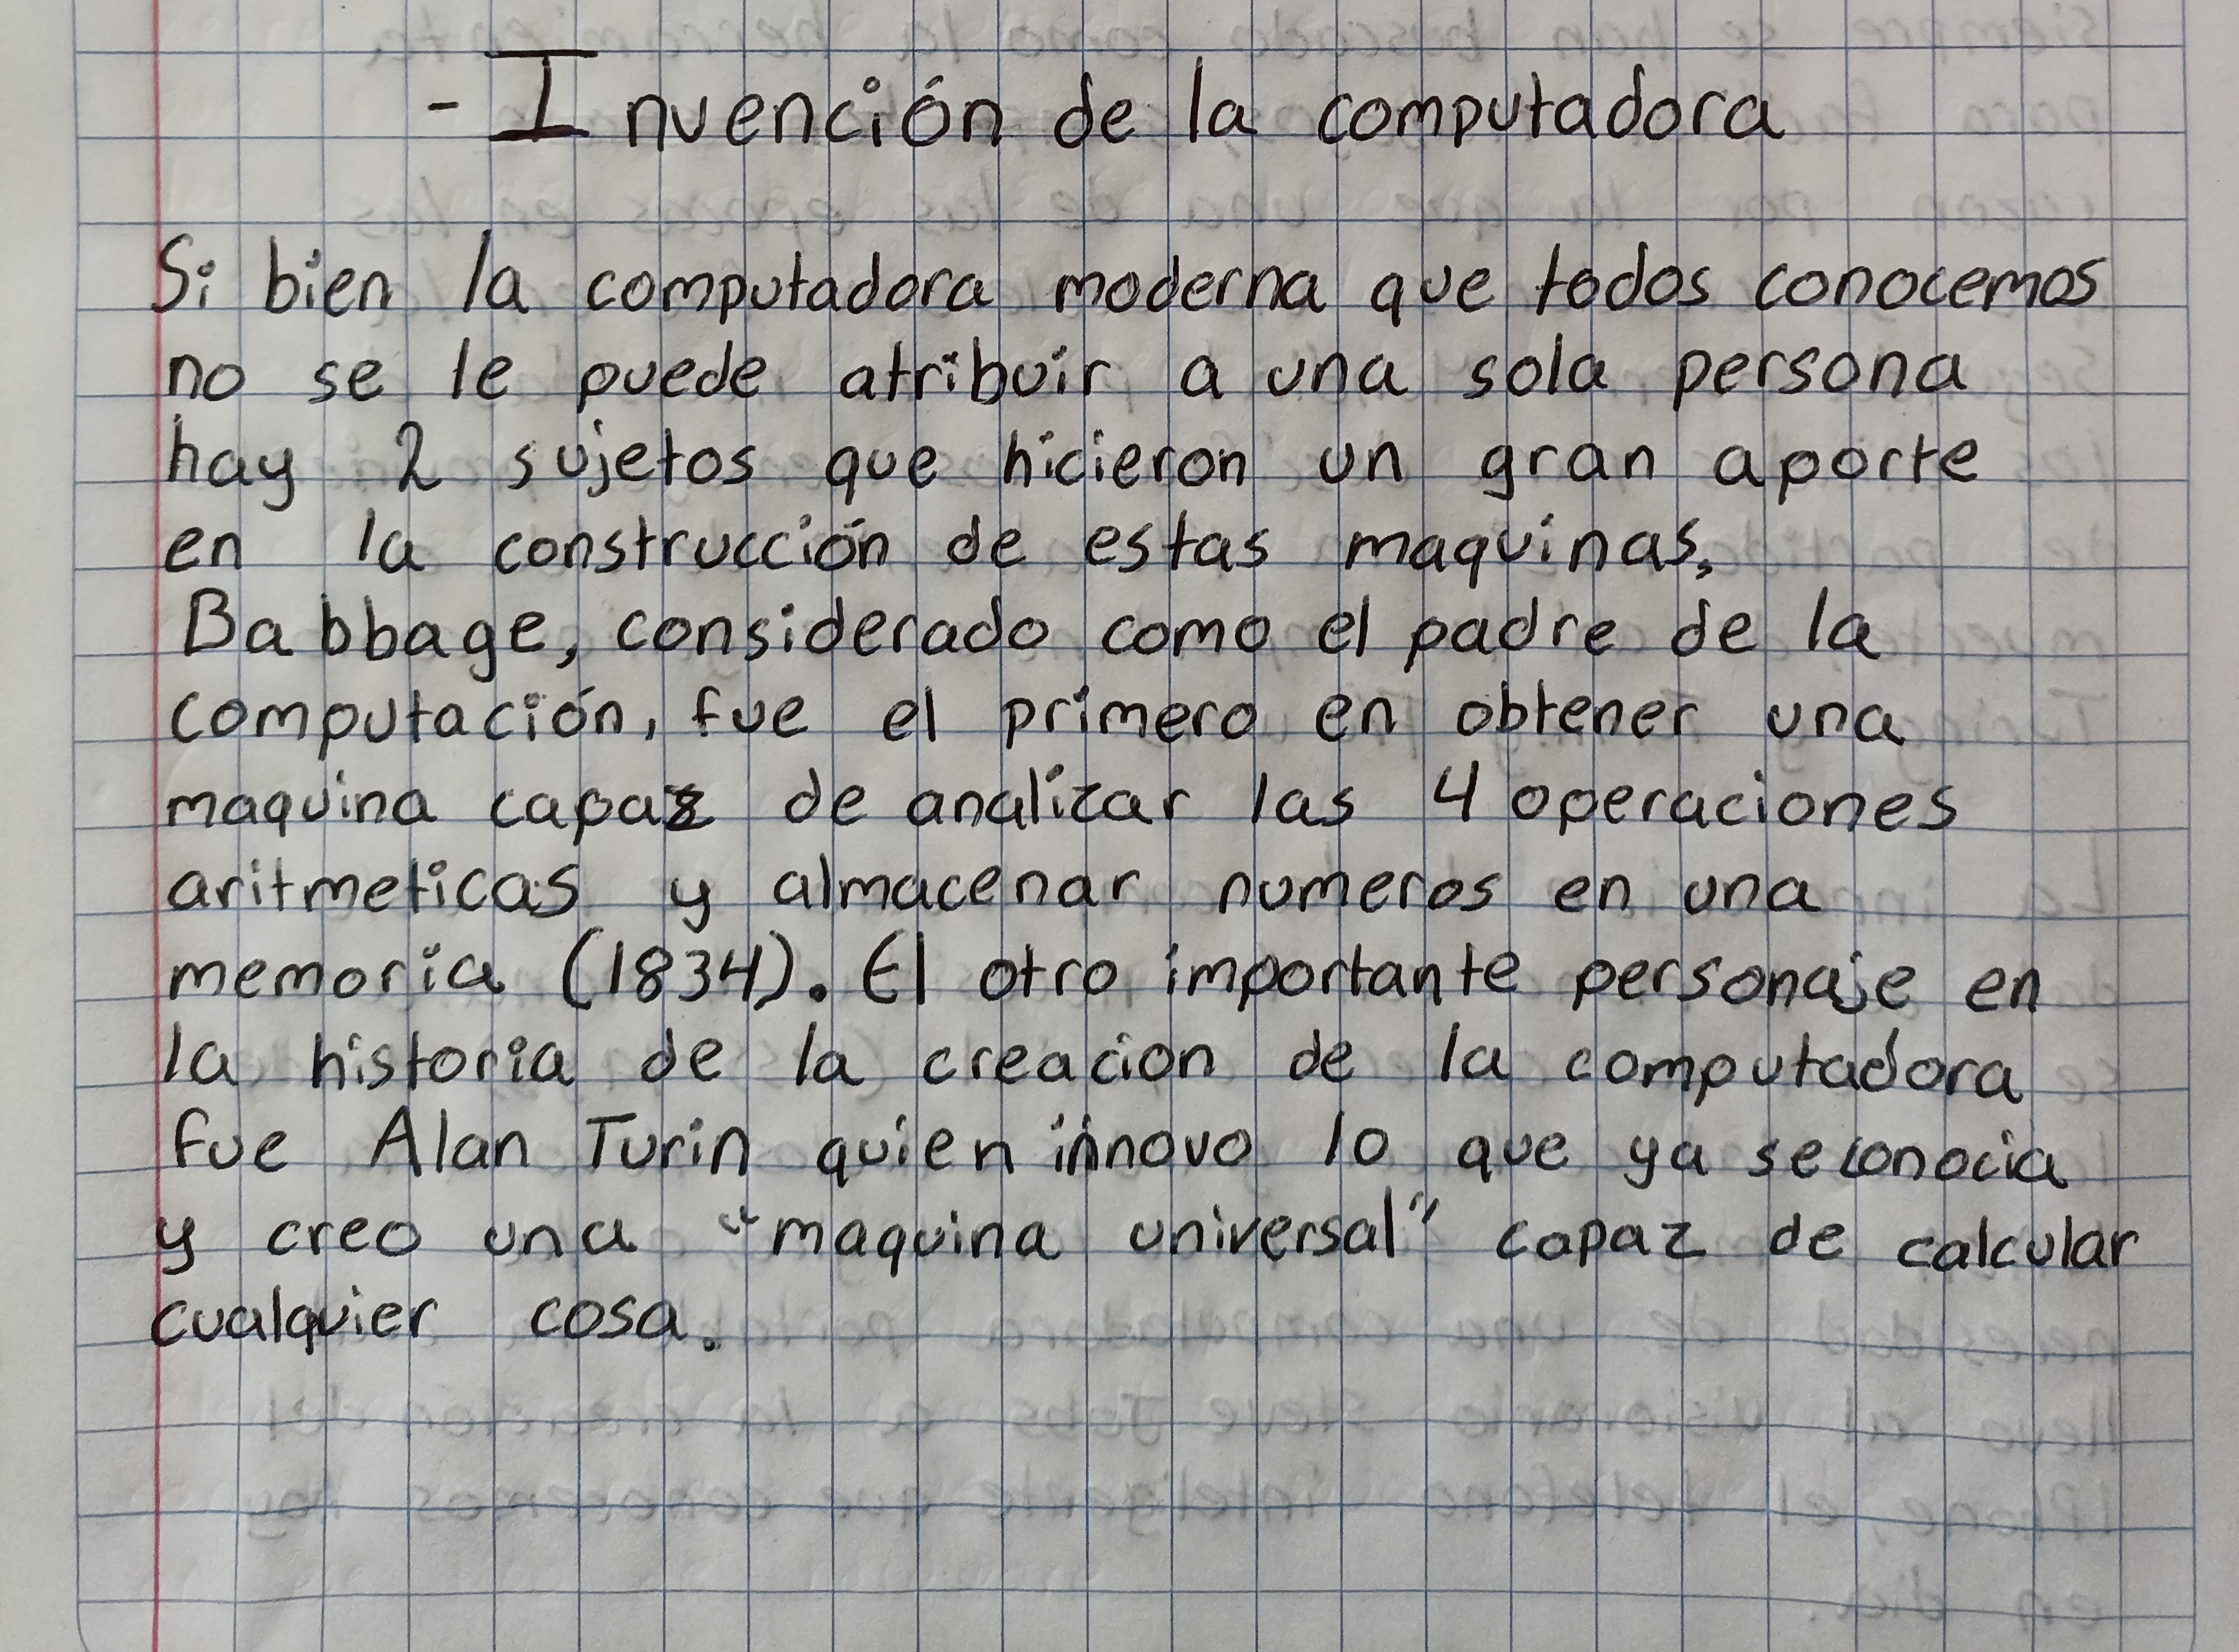 - Invención de la computadora
Si bien la computadora moderna que todos conocemos
no se le puede atribuir a una sola persona
hay 2 sujetos que hicieron un gran aporte
en la construcción de estas maquinas,
Babbage, considerado como el padre de la
computación, fue el primero en obtener una
maquina capaz de analizar las 4 operaciones
aritmeticas y almacenar numeros en una
memoria (1834). El otro importante personaje en
la historia de la creacion de la computadora
fue Alan Turin quien innovo lo que ya se conocia
y creo una "maquina universal" capaz de calcular
cualquier cosa.